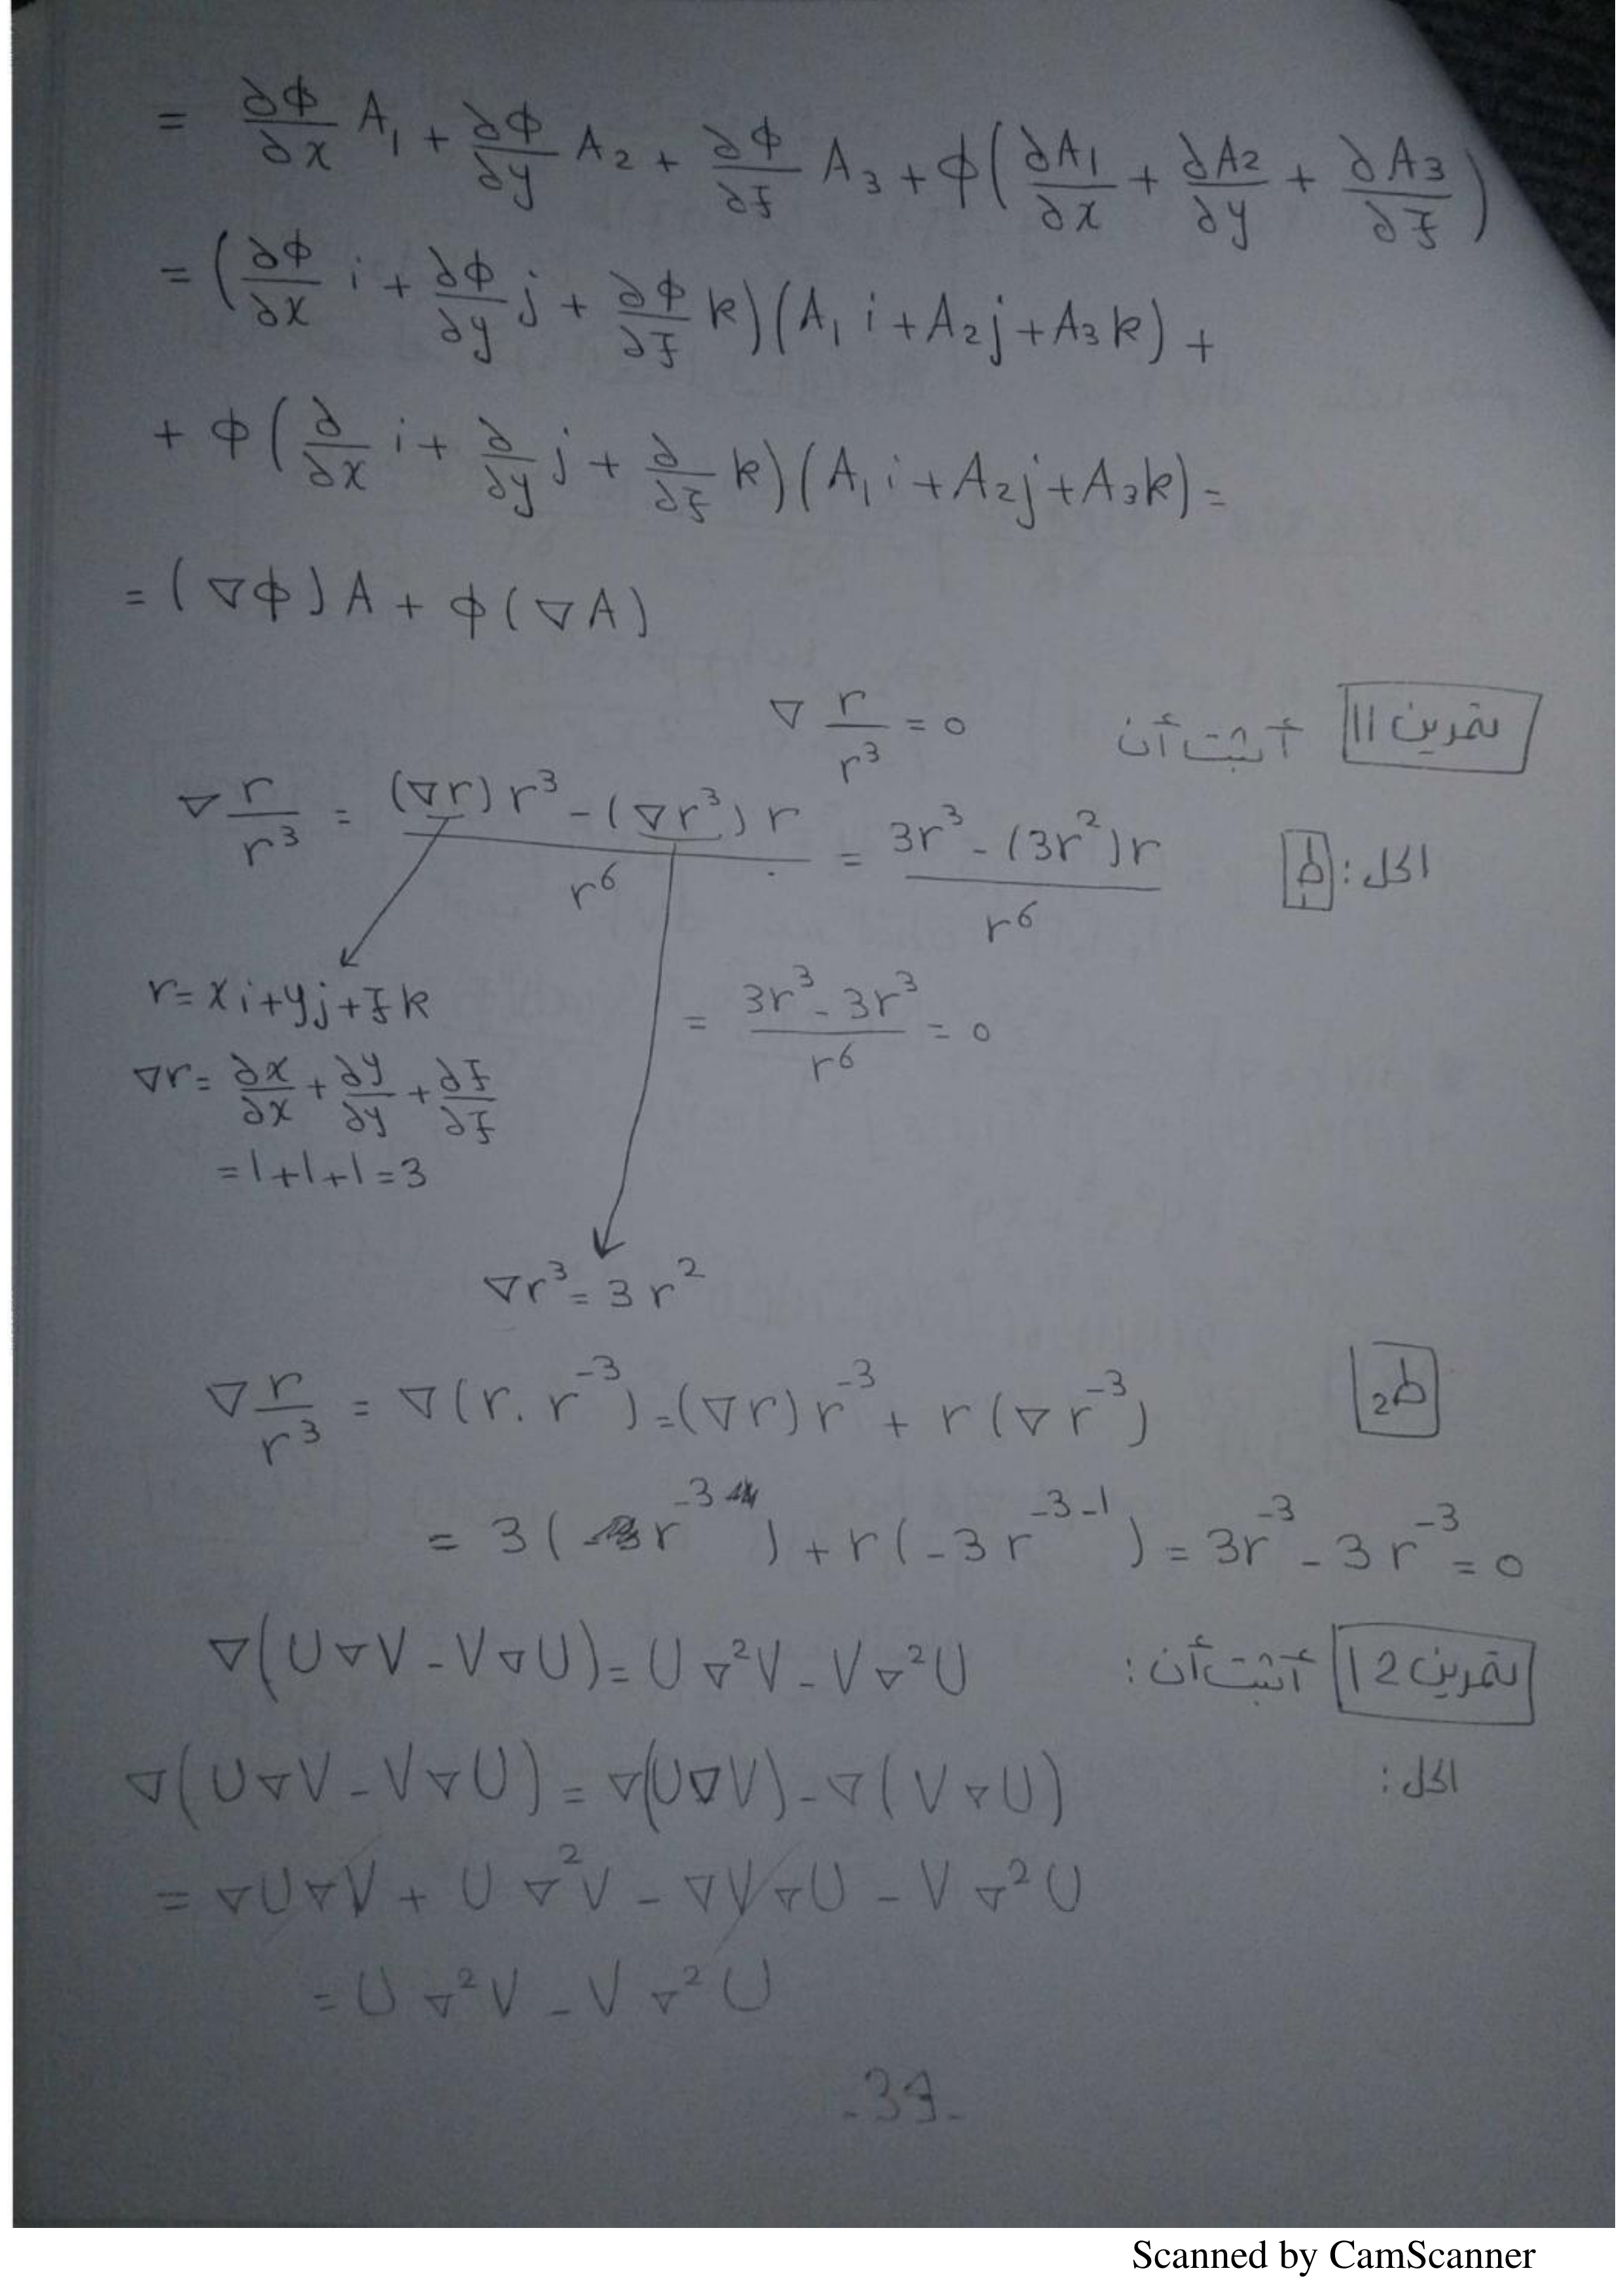 = ∂φ/∂x A₁ + ∂φ/∂y A₂ + ∂φ/∂z A₃ + φ(∂A₁/∂x + ∂A₂/∂y + ∂A₃/∂z)
= (∂φ/∂x i + ∂φ/∂y j + ∂φ/∂z k)(A₁ i + A₂ j + A₃ k) +
+ φ(∂/∂x i + ∂/∂y j + ∂/∂z k)(A₁ i + A₂ j + A₃ k) =
= (∇φ)A + φ(∇A)
تمرين 11 أثبت أن ∇ r/r³ = 0
الحل: ط₁
∇ r/r³ = ((∇r)r³ - (∇r³)r)/r⁶ = (3r³ - (3r²)r)/r⁶
= (3r³ - 3r³)/r⁶ = 0
r = xi + yj + zk
∇r = ∂x/∂x + ∂y/∂y + ∂z/∂z
= 1+1+1 = 3
∇r³ = 3r²
ط₂
∇ r/r³ = ∇(r . r⁻³) = (∇r)r⁻³ + r(∇r⁻³)
= 3(r⁻³) + r(-3r⁻³⁻¹) = 3r⁻³ - 3r⁻³ = 0
تمرين 12 أثبت أن: ∇(U∇V - V∇U) = U∇²V - V∇²U
الحل:
∇(U∇V - V∇U) = ∇(U∇V) - ∇(V∇U)
= ∇U∇V + U∇²V - ∇V∇U - V∇²U
= U∇²V - V∇²U
-39-
Scanned by CamScanner